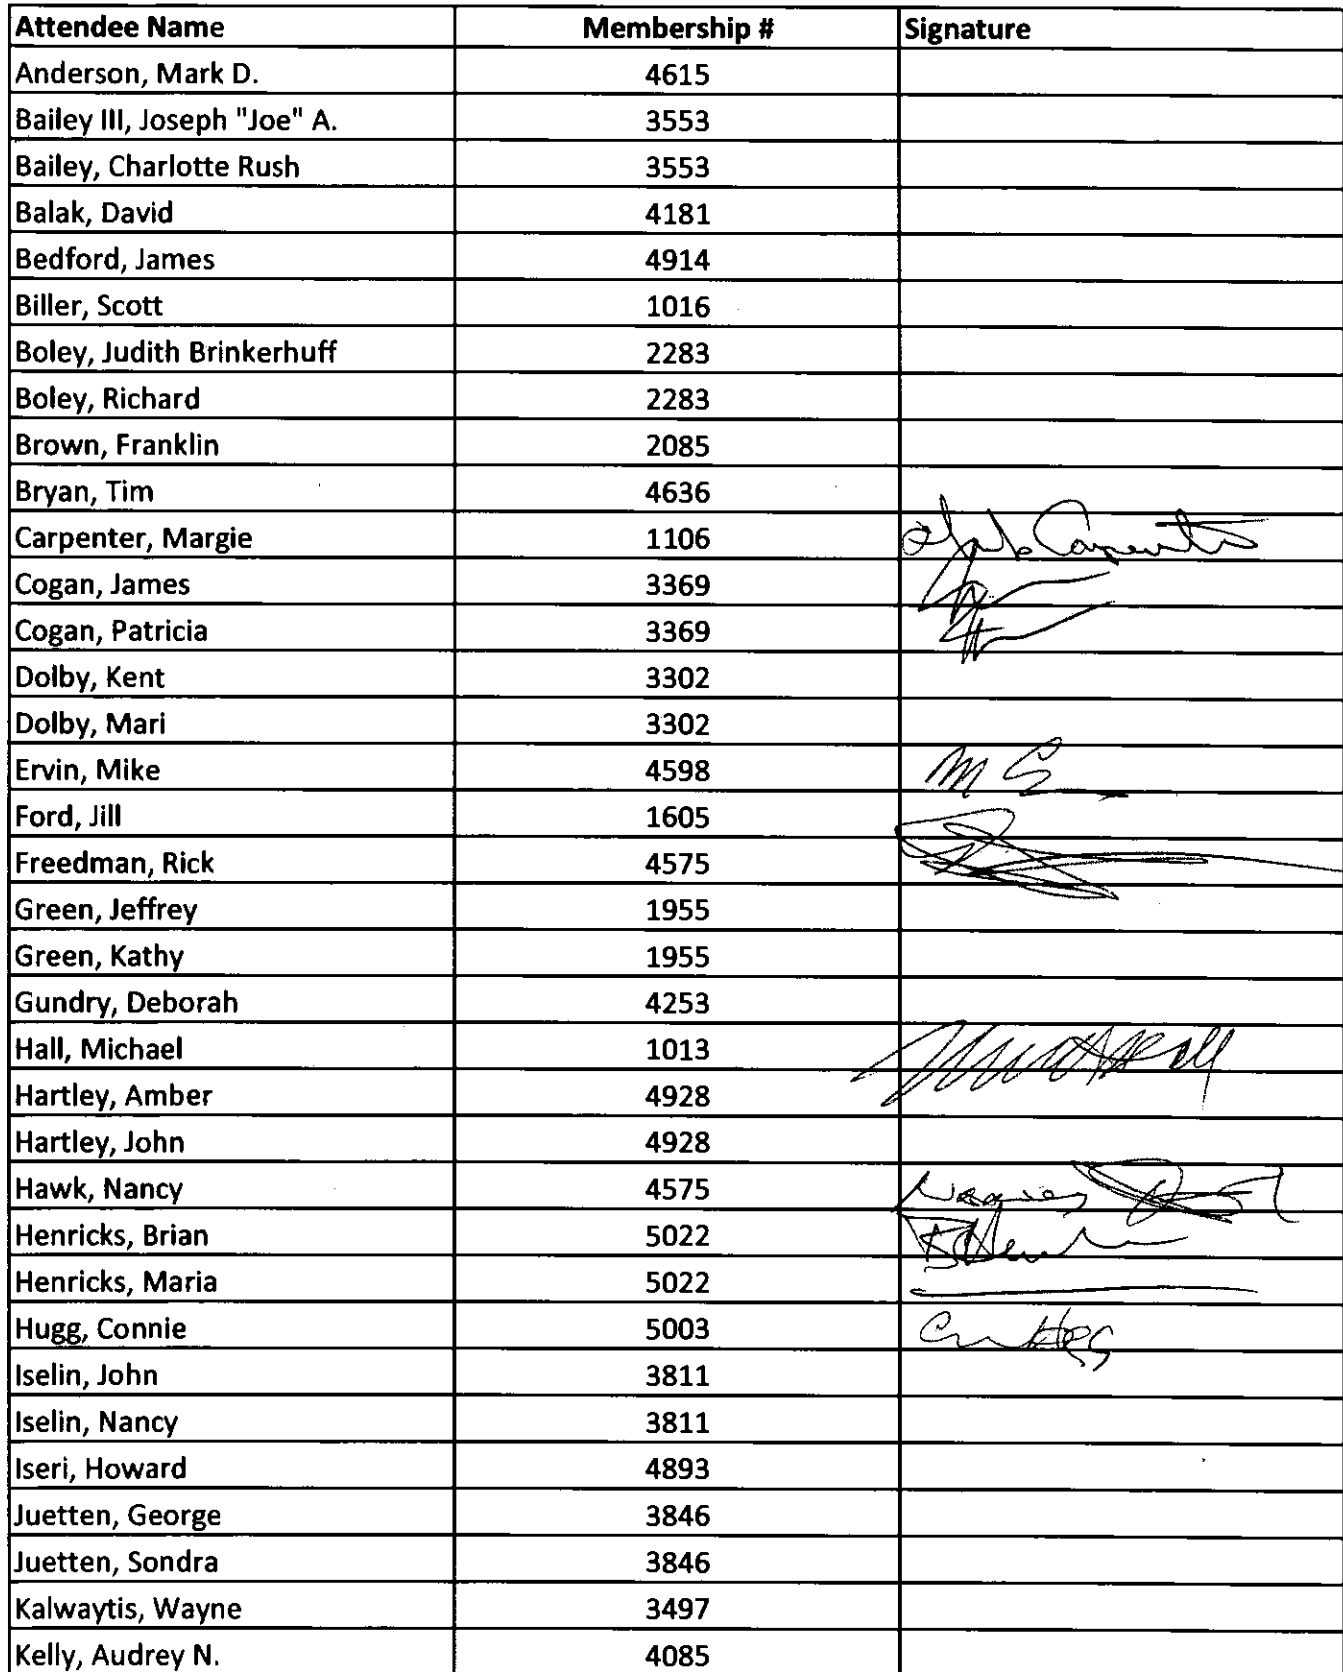 Attendee Name Membership # Signature
Anderson, Mark D. 4615
Bailey III, Joseph "Joe" A. 3553
Bailey, Charlotte Rush 3553
Balak, David 4181
Bedford, James 4914
Biller, Scott 1016
Boley, Judith Brinkerhuff 2283
Boley, Richard 2283
Brown, Franklin 2085
Bryan, Tim 4636
Carpenter, Margie 1106
Cogan, James 3369
Cogan, Patricia 3369
Dolby, Kent 3302
Dolby, Mari 3302
Ervin, Mike 4598
Ford, Jill 1605
Freedman, Rick 4575
Green, Jeffrey 1955
Green, Kathy 1955
Gundry, Deborah 4253
Hall, Michael 1013
Hartley, Amber 4928
Hartley, John 4928
Hawk, Nancy 4575
Henricks, Brian 5022
Henricks, Maria 5022
Hugg, Connie 5003
Iselin, John 3811
Iselin, Nancy 3811
Iseri, Howard 4893
Juetten, George 3846
Juetten, Sondra 3846
Kalwaytis, Wayne 3497
Kelly, Audrey N. 4085